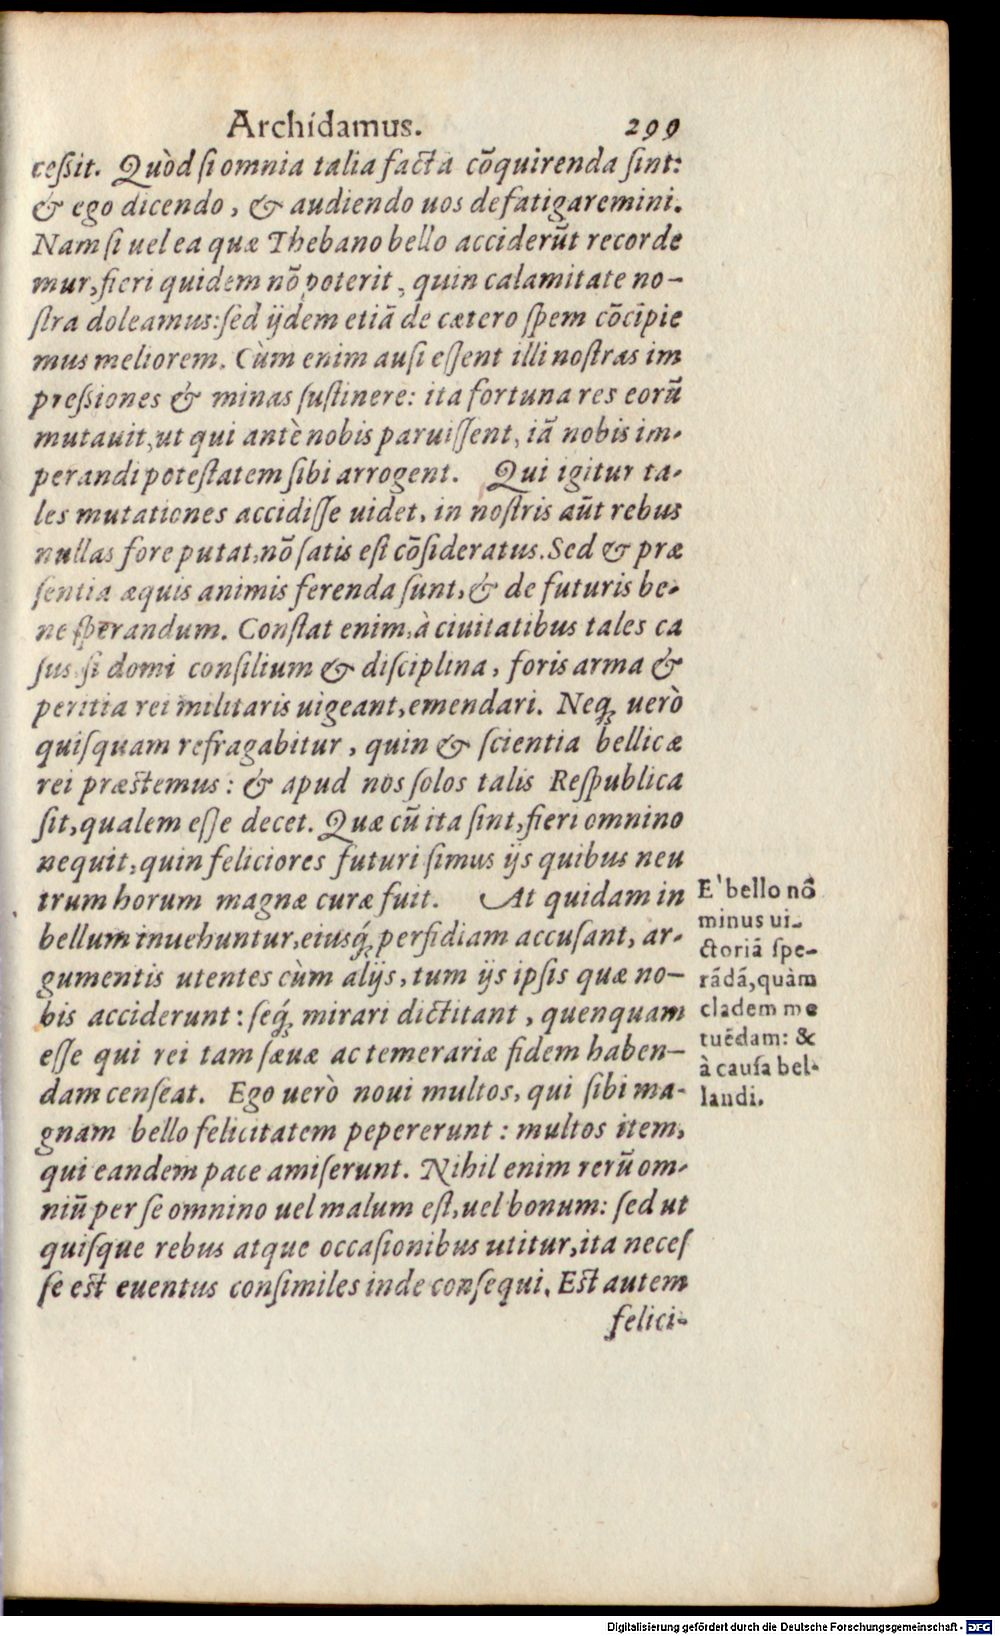 Archidamus. 299
ceßit. Quòd ſi omnia talia facta cõquirenda ſint:
& ego dicendo, & audiendo uos defatigaremini.
Nam ſi uel ea quæ Thebano bello acciderũt recorde
mur, fieri quidem nõ poterit, quin calamitate no-
ſtra doleamus: ſed ijdem etiã de cætero ſpem cõcipie
mus meliorem. Cùm enim auſi eſſent illi noſtras im
preßiones & minas ſuſtinere: ita fortuna res eorũ
mutauit, ut qui antè nobis paruiſſent, iã nobis im-
perandi poteſtatem ſibi arrogent. Qui igitur ta-
les mutationes accidiſſe uidet, in noſtris aũt rebus
nullas fore putat, nõ ſatis eſt cõſideratus. Sed & præ
ſentia æquis animis ferenda ſunt, & de futuris be-
ne ſperandum. Conſtat enim, à ciuitatibus tales ca
ſus, ſi domi conſilium & diſciplina, foris arma &
peritia rei militaris uigeant, emendari. Neq; uerò
quiſquam refragabitur, quin & ſcientia bellicæ
rei præſtemus: & apud nos ſolos talis Reſpublica
ſit, qualem eſſe decet. Quæ cũ ita ſint, fieri omnino
nequit, quin feliciores futuri ſimus ijs quibus neu
trum horum magnæ curæ fuit. At quidam in
bellum inuehuntur, eiusq́; perfidiam accuſant, ar-
gumentis utentes cùm alijs, tum ijs ipſis quæ no-
bis acciderunt: ſeq́; mirari dictitant, quenquam
eſſe qui rei tam ſæuæ ac temerariæ fidem haben-
dam cenſeat. Ego uerò noui multos, qui ſibi ma-
gnam bello felicitatem pepererunt: multos item,
qui eandem pace amiſerunt. Nihil enim rerũ om-
niũ per ſe omnino uel malum eſt, uel bonum: ſed ut
quiſque rebus atque occaſionibus utitur, ita neceſ
ſe eſt euentus conſimiles inde conſequi. Eſt autem
felici-
E' bello nõ
minus ui-
ctoriã ſpe-
rãdã, quàm
cladem me
tuẽdam: &
à cauſa bel-
landi.
Digitalisierung gefördert durch die Deutsche Forschungsgemeinschaft - DFG